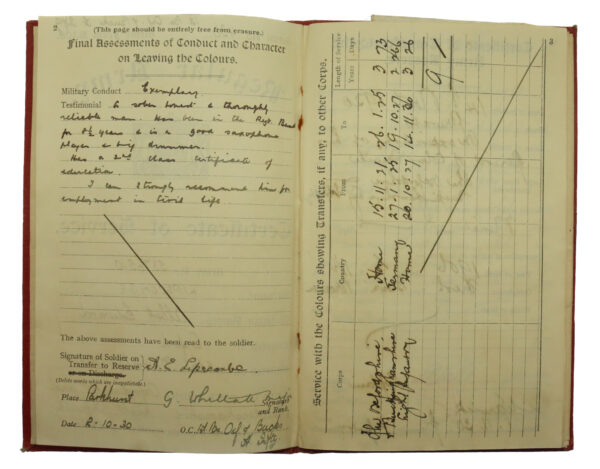 2
(This page should be entirely free from erasure.)
Final Assessments of Conduct and Character
on Leaving the Colours.
Military Conduct Exemplary
Testimonial A sober honest & thoroughly
reliable man. Has been in the Regt. Band
for 8½ years & is a good saxophone
player & drummer.
Has a 2nd class certificate of
education.
I can strongly recommend him for
employment in Civil life
The above assessments have been read to the soldier.
Signature of Soldier on
Transfer to Reserve A. E. Lipscombe
or on Discharge.
(Delete words which are inapplicable.)
Place Parkhurst
Signature
and Rank.
Date 2-10-30 O.C. 1st Bn Oxf & Bucks
Lt Infy
3
Service with the Colours showing Transfers, if any, to other Corps.
Corps Country From To Length of Service
Years Days
The Oxfordshire Home 15.11.21 26.1.25 3 73
& Buckinghamshire Germany 27.1.25 19.10.27 2 266
Light Infantry Home 20.10.27 14.11.30 3 26
9 /